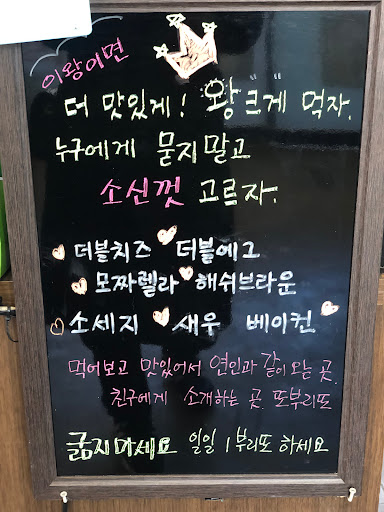 이왕이면
더 맛있게! 왕크게 먹자.
누구에게 묻지말고
소신껏 고르자.
더블치즈 더블에그
모짜렐라 해쉬브라운
소세지 새우 베이컨
먹어보고 맛있어서 연인과 같이 오는 곳.
친구에게 소개하는 곳. 또부리또
굶지마세요 일일 1부리또 하세요